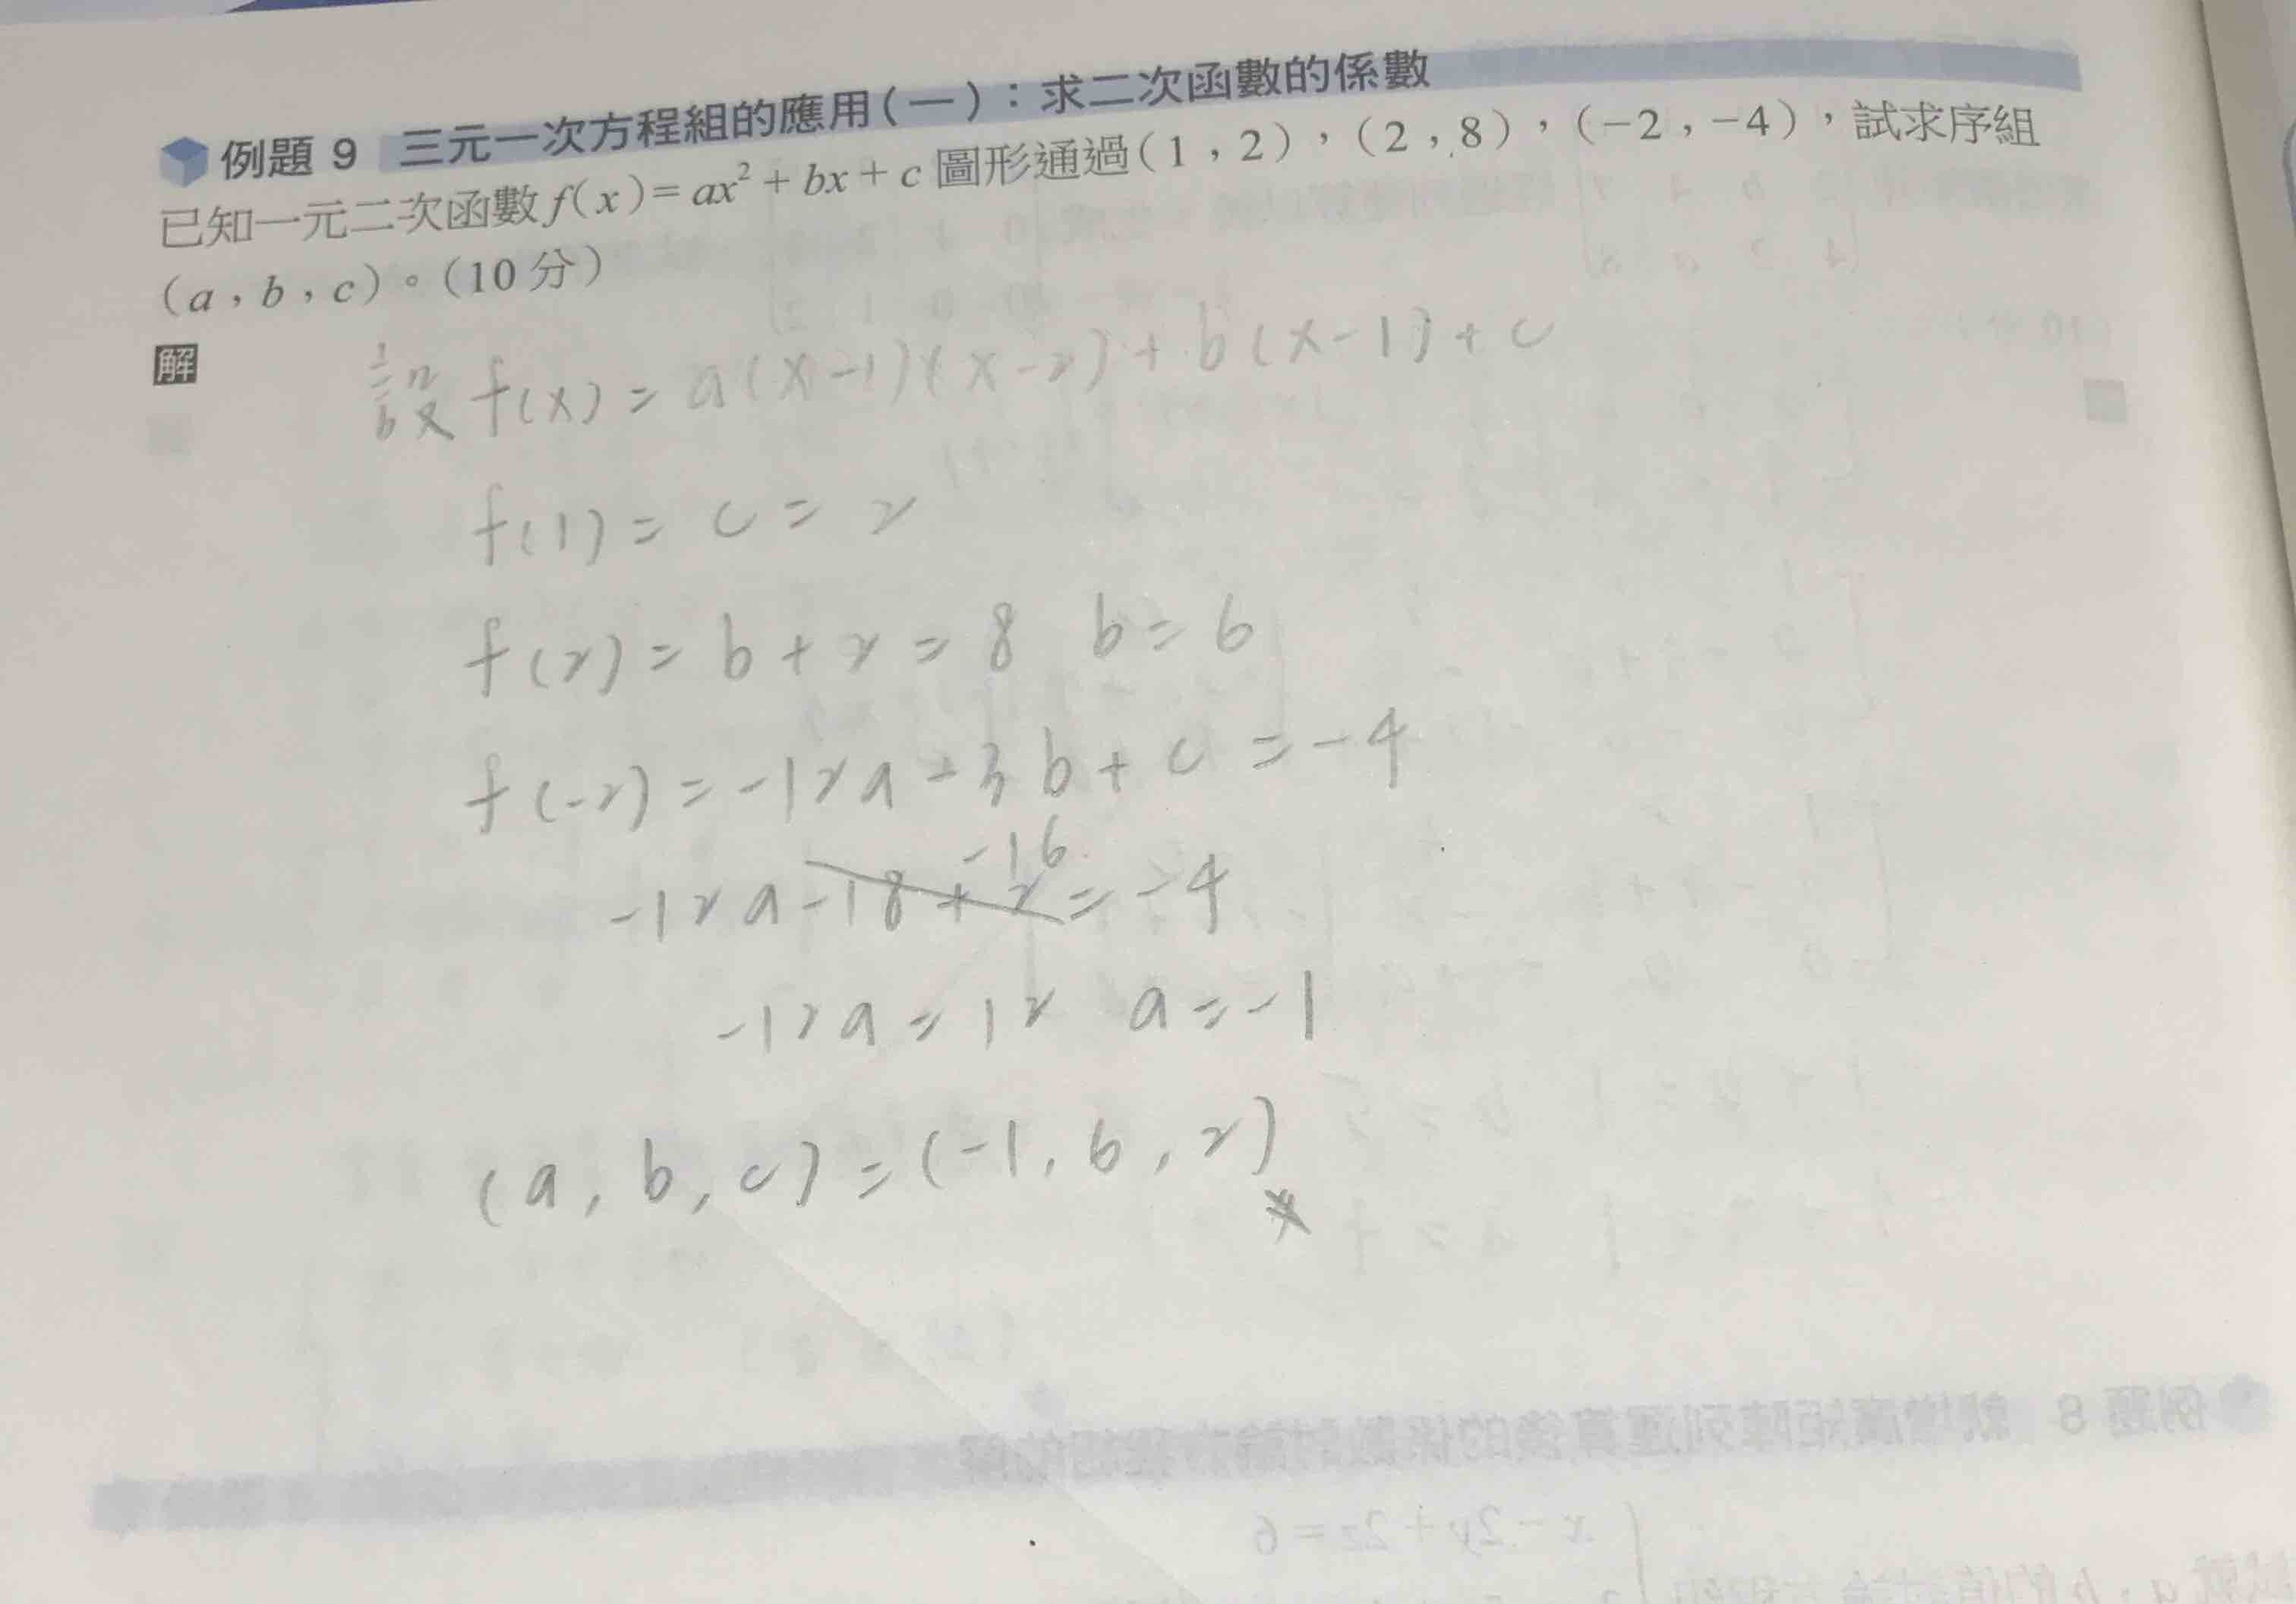 例題 9 三元一次方程組的應用(一):求二次函數的係數
已知一元二次函數 f(x)=ax²+bx+c 圖形通過(1,2),(2,8),(-2,-4),試求序組
(a,b,c)。(10 分)
解
設 f(x) = a(x-1)(x-2)+b(x-1)+c
f(1) = c = 2
f(2) = b+2 = 8 b=6
f(-2) = -12a-3b+c = -4
-16
-12a-18+2 = -4
-12a = 12 a = -1
(a, b, c) = (-1, 6, 2)
例題 8 就增廣矩陣列運算後的係數討論方程組的解
x-2y+2z=6